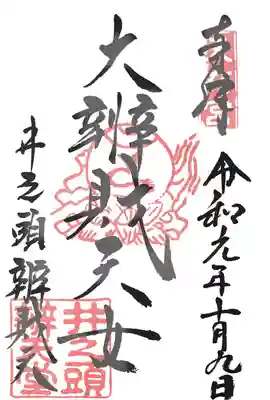 奉拝
令和元年十一月九日
大辨財天女
井之頭辨財天
井之頭
辨財天